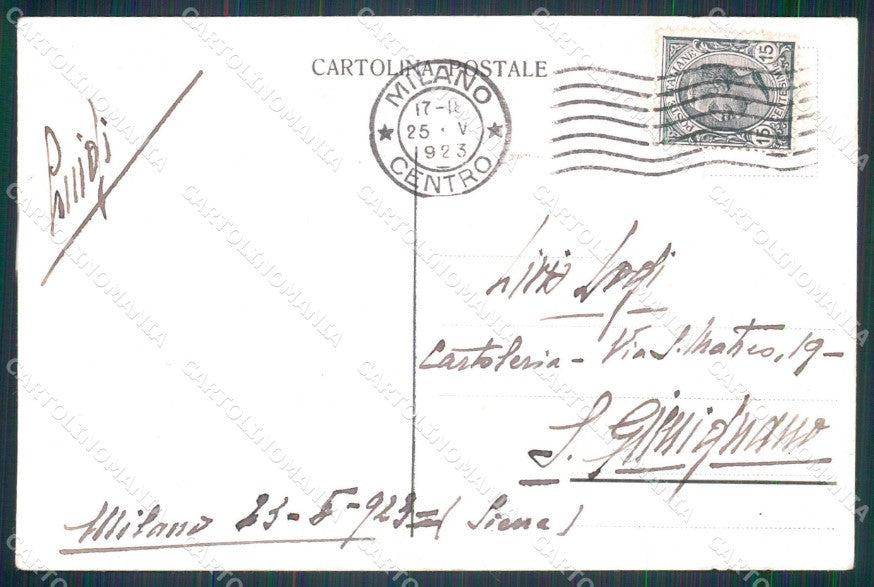 CARTOLINA POSTALE
MILANO
17-18
25 · V
1923
CENTRO
POSTE ITALIANE
15 CENTESIMI 15
Luigi
Livi Luigi
Cartoleria - Via S. Matteo, 19 -
S. Gimignano
(Siena)
Milano 25-5-923=
CARTOLINOMANIA